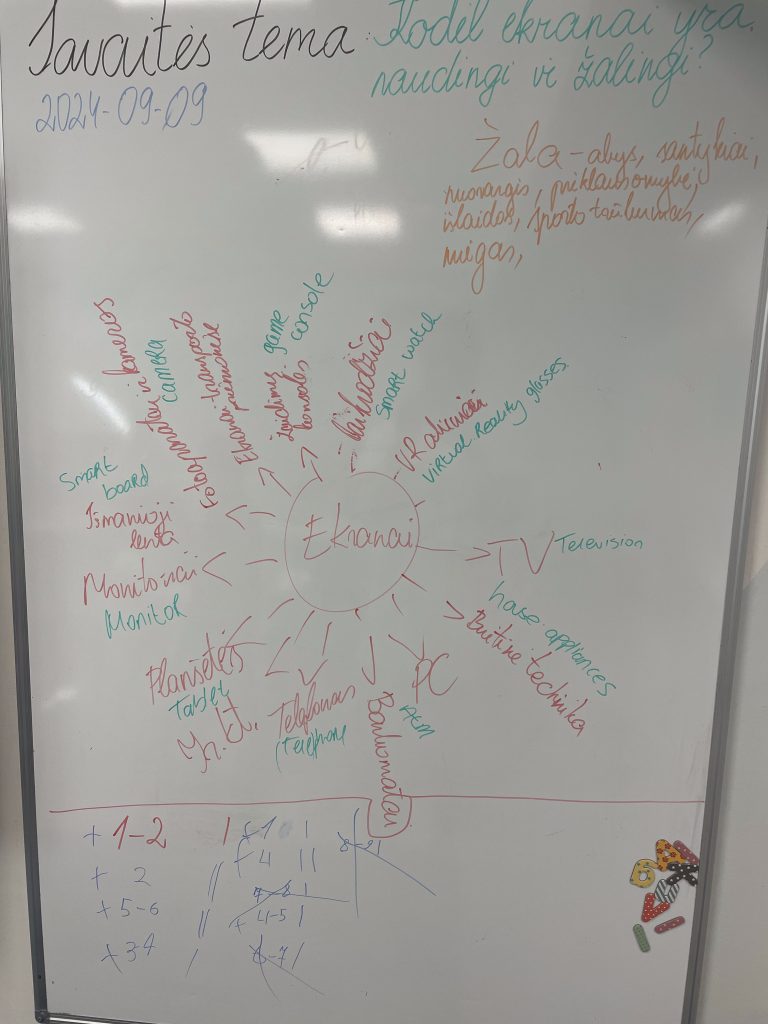 Savaitės tema: Kodėl ekranai yra
naudingi ir žalingi?
2024-09-09
Žala - akys, santykiai,
nuovargis, priklausomybė,
išlaidos, sporto trūkumas,
miegas,
Ekranai
Fotoaparatai ir kameros
camera
Ekranai transporto
priemonėse
Žaidimų
konsolės
game
console
Smart watch
VR akiniai
Virtual Reality glasses
TV Television
house appliances
Buitinė technika
PC
Bankomatai
ATM
Telefonas
(Telephone
Ir kt.
Planšetės
Tablet
Monitoriai
Monitor
Smart
board
Išmanioji
lenta
+ 1-2 |
+ 2 ||
+ 5-6 ||
+ 3-4 /
+ 1 |
+ 4 ||
7-8 |
+ 4-5 |
6-7 |
8-9 |